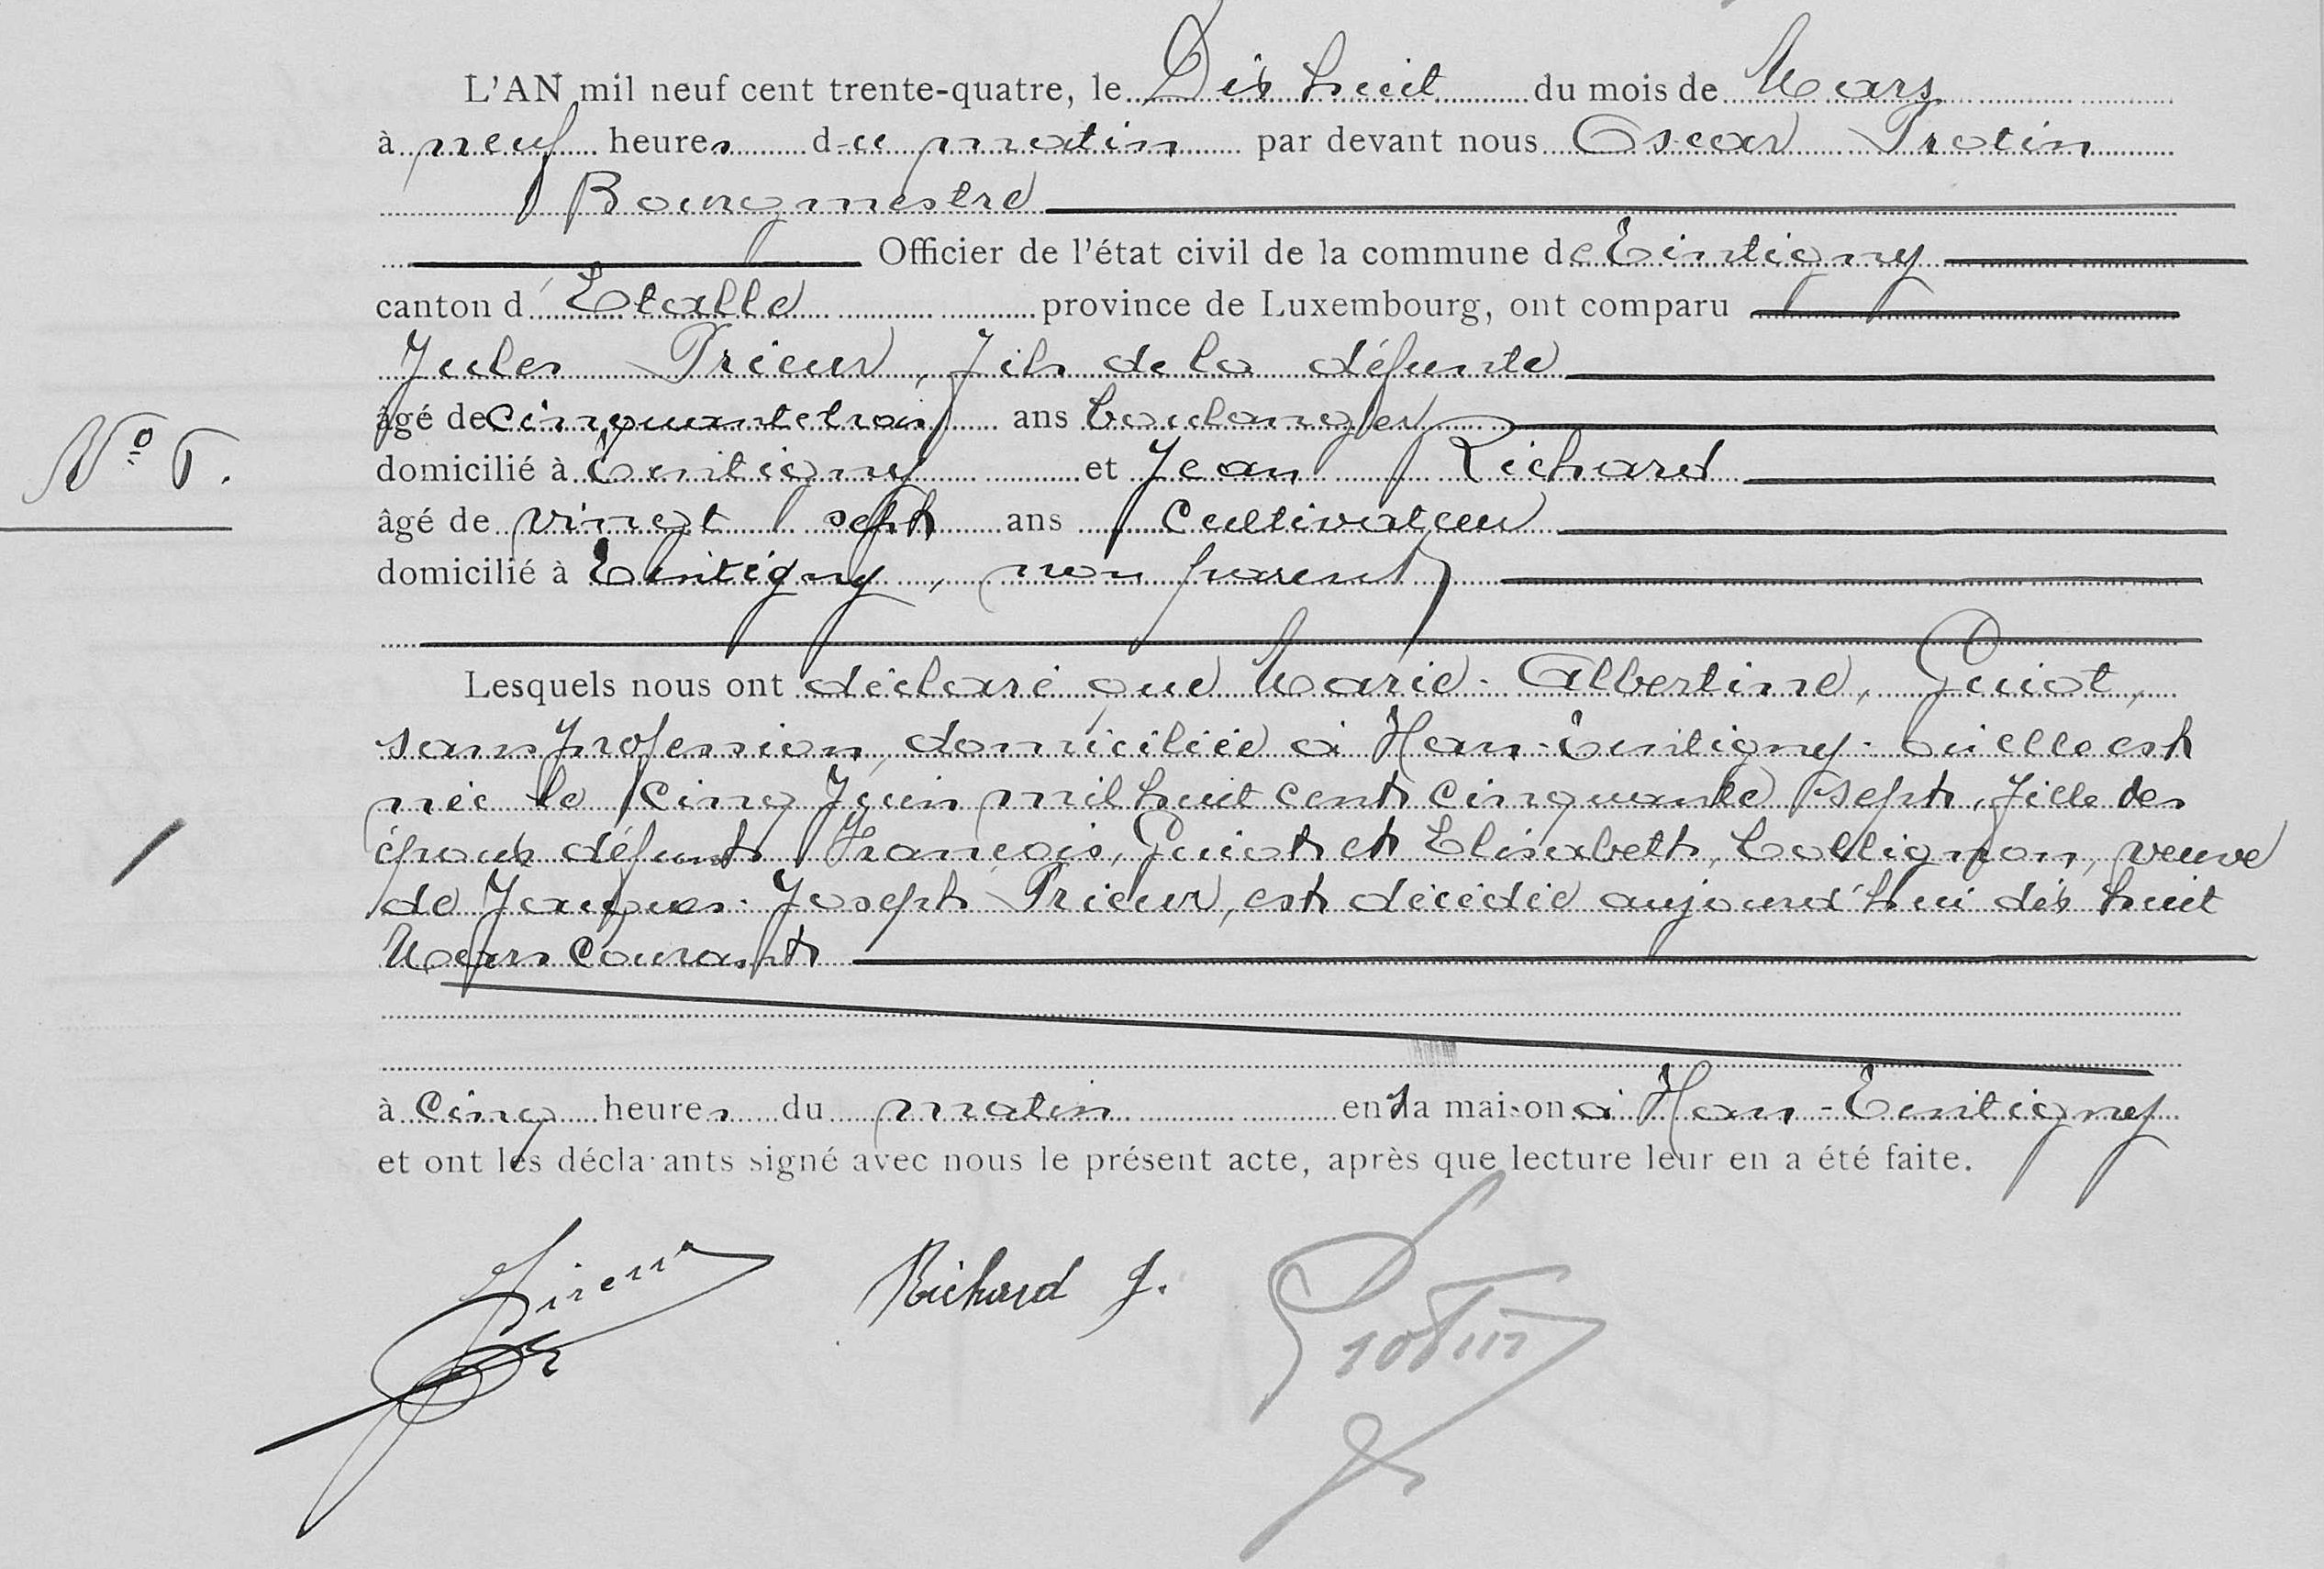 L'AN mil neuf cent trente-quatre, le Dix huit du mois de Mars
à neuf heures du matin par devant nous Oscar Protin
Bourgmestre
Officier de l'état civil de la commune de Tintigny
canton d'Etalle province de Luxembourg, ont comparu
Jules Prieur, fils de la défunte
âgé de cinquante trois ans boulanger
N° 6.
domicilié à Tintigny et Jean Richard
âgé de vingt sept ans cultivateur
domicilié à Tintigny, non parents
Lesquels nous ont déclaré que Marie-Albertine, Guiot,
sans profession, domiciliée à Han-Tintigny où elle est
née le cinq Juin mil huit cent cinquante sept, fille des
époux défunts François, Guiot et Elisabeth, Collignon, veuve
de Jacques-Joseph Prieur, est décédée aujourd'hui dix huit
Mars courant
à cinq heures du matin en sa maison à Han-Tintigny
et ont les déclarants signé avec nous le présent acte, après que lecture leur en a été faite.
Prieur Richard J. Protin